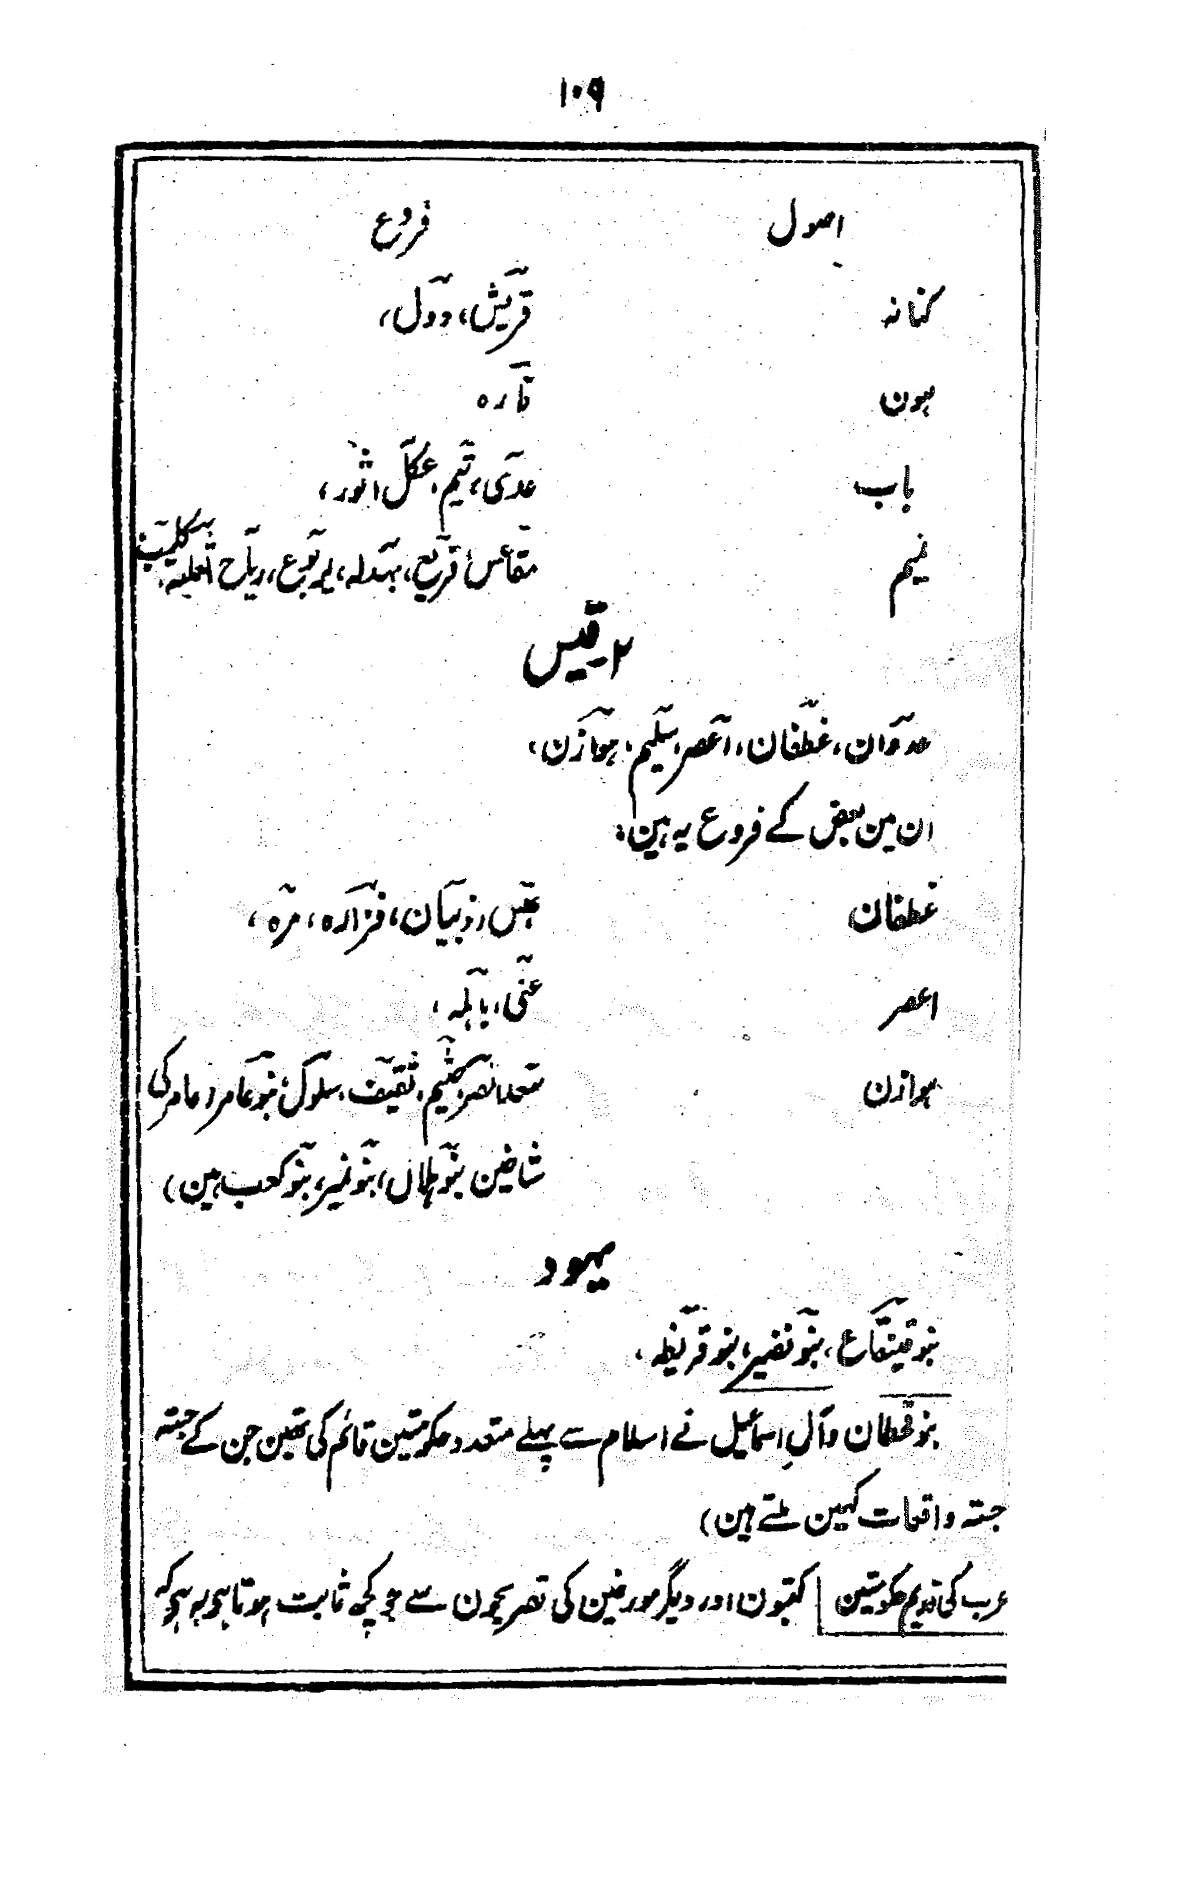 ۱۰۹
اصول فروع
کنانہ قریش، دول،
ہون قارہ
باب عدی، تیم، عکل، ثور،
تمیم مقاعس، قریع، بہدلہ، یربوع، ریاح، ثعلبہ، کلیب
۲۔ قیس
عدوان، غطفان، اعصر، سلیم، ہوازن،
ان مین بعض کے فروع یہ ہین:
غطفان عبس، ذبیان، فزارہ، مرہ،
اعصر غنی، باہلہ،
ہوازن سعد، نصر، جشیم، ثقیف، سلول، بنو عامر (عامر کی
شاخین بنو ہلال، بنو نمیر، بنو کعب ہین)
یہود
بنو قینقاع، بنو نضیر، بنو قریظہ،
بنو قحطان و آلِ اسماعیل نے اسلام سے پہلے متعدد حکومتین قائم کی تھین جن کے جستہ
جستہ واقعات کہین ملتے ہین)
عرب کی قدیم حکومتین کتبون اور دیگر مورخین کی تصریحون سے جو کچھ ثابت ہوتا ہو یہ ہو کہ